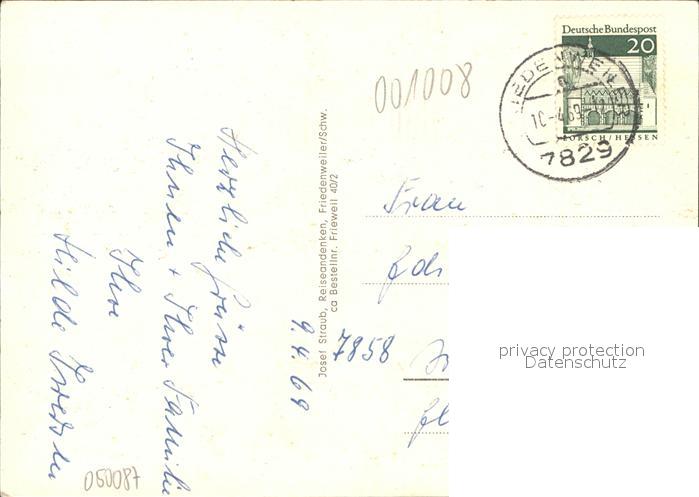 Herzliche Grüsse
Ihnen + Ihrer Familie
Ihre
Hilde
9.4.69
001008
050087
Josef Straub, Reiseandenken, Friedenweiler/Schw.
ca Bestellnr. Frieweil 40/2
Deutsche Bundespost
20
LORSCH/HESSEN
10.-4.69
7829
Frau
7858
privacy protection
Datenschutz